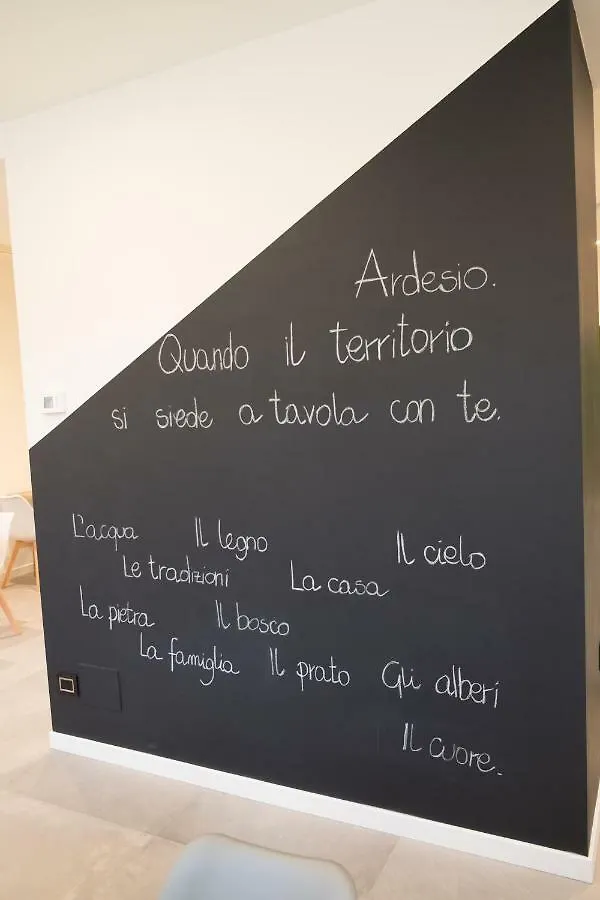 Ardesio.
Quando il territorio
si siede a tavola con te.
L'acqua Il legno Il cielo
Le tradizioni La casa
La pietra Il bosco
La famiglia Il prato Gli alberi
Il cuore.